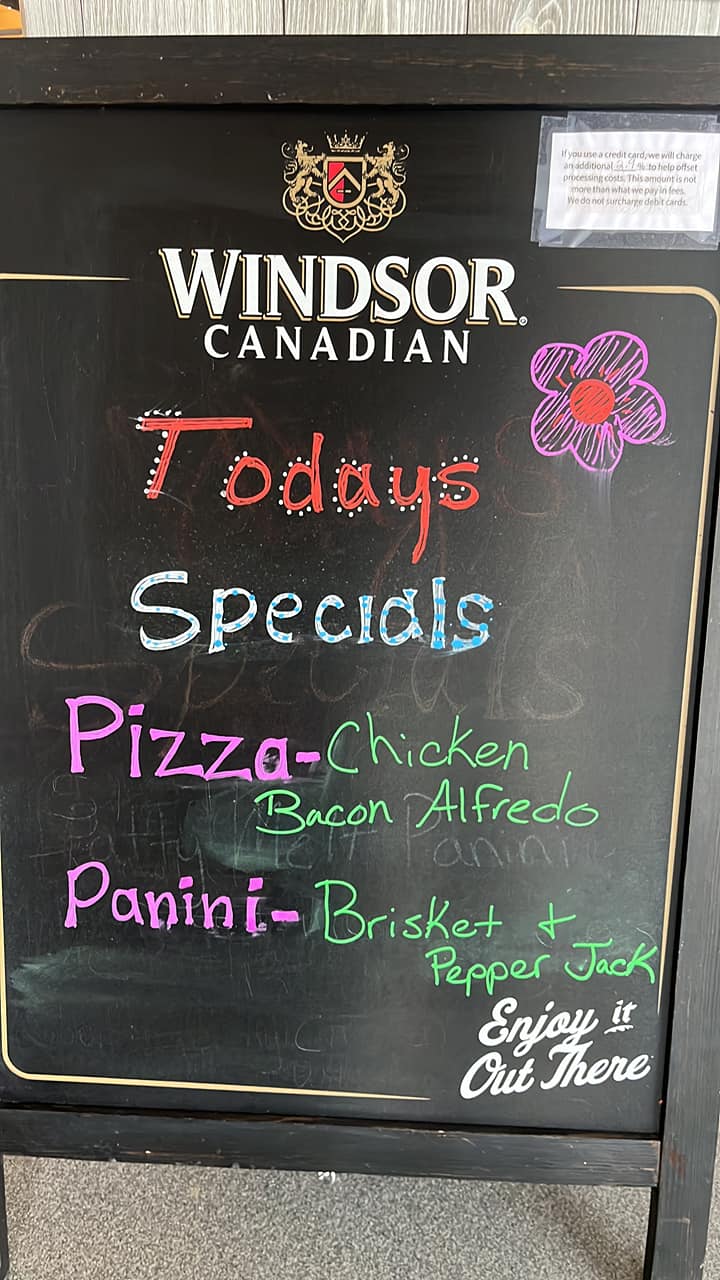 If you use a credit card, we will charge
an additional 2.9 % to help offset
processing costs. This amount is not
more than what we pay in fees.
We do not surcharge debit cards.
WINDSOR®
CANADIAN
Todays
Specials
Pizza-Chicken
Bacon Alfredo
Panini-Brisket +
Pepper Jack
Enjoy it
Out There